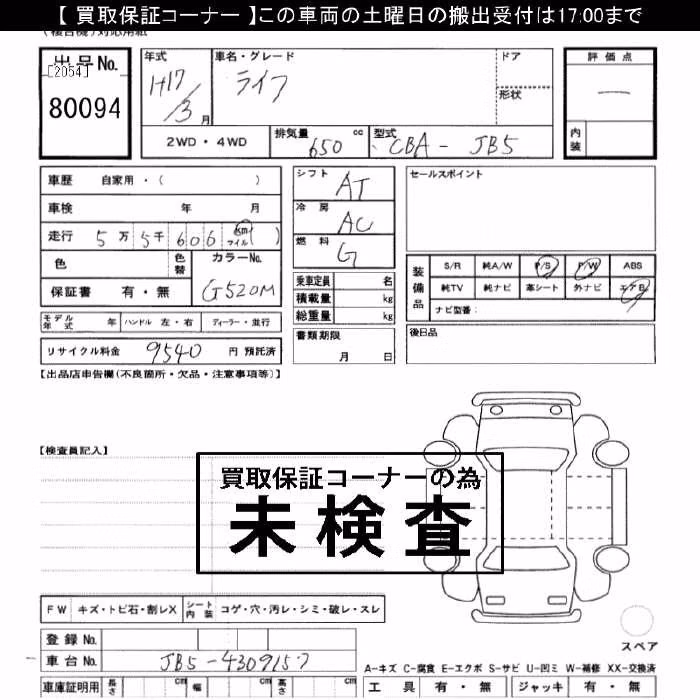 【 買取保証コーナー 】この車両の土曜日の搬出受付は17:00まで
出品No.
[2054]
80094
年式
H17/3月
車名・グレード
ライフ
ドア
形状
評価点
―
内装
2WD・4WD
排気量 650 cc
型式 CBA-JB5
車歴 自家用・( )
車検 年 月
走行 5万5千606 km マイル ( )
色
色替
カラーNo.
G520M
保証書 有・無
シフト AT
冷房 AC
燃料 G
乗車定員 名
積載量 kg
総重量 kg
セールスポイント
装備品
S/R 純A/W P/S P/W ABS
純TV 純ナビ 革シート 外ナビ エアB
ナビ型番:
モデル年式 年 ハンドル 左・右 ディーラー・並行
リサイクル料金 9540 円 預託済
書類期限
月 日
後日品
【出品店申告欄(不良箇所・欠品・注意事項等)】
【検査員記入】
買取保証コーナーの為
未検査
FW キズ・トビ石・割レX シート内装 コゲ・穴・汚レ・シミ・破レ・スレ
登録No.
車台No. JB5-4309157
車庫証明用 長さ cm 幅 cm 高さ cm
スペア
A-キズ C-腐食 E-エクボ S-サビ U-凹ミ W-補修 XX-交換済
工具 有・無 ジャッキ 有・無